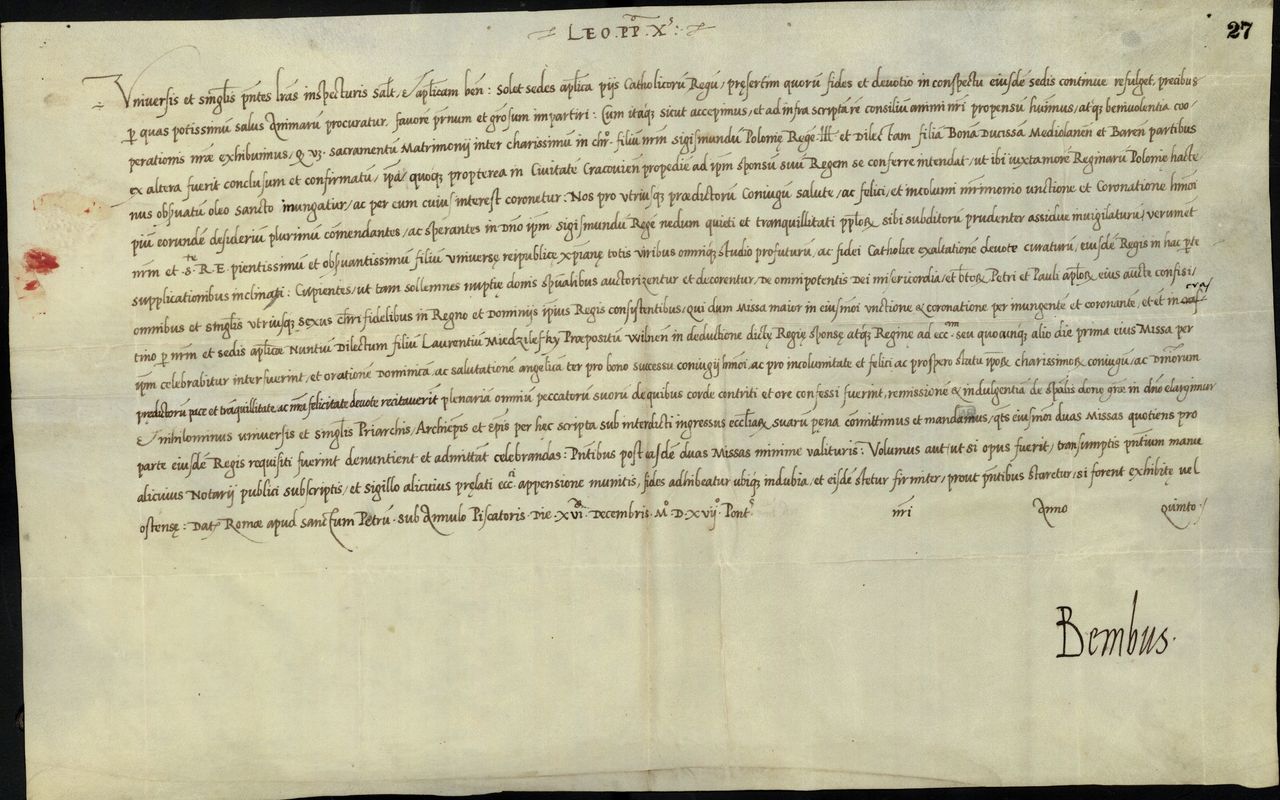 LEO. PP. Xs:
27
Vniversis et singlis pntes lras inspecturis salt, & aplicam ben: Solet sedes aplica pijs Catholicorũ Regũ, presertim quorũ fides et devotio in conspectu eiusdẽ sedis continue refulget, precibus
p quas potissimũ salus Animarũ procuratur, favorẽ prnum et grosum impartiri: Cum itaq; sicut accepimus, et ad infra scriptã re consilium animi nri propensũ huimus, atq; benivolentia coo-
perationis nrae exhibuimus, & vz. sacramentũ Matrimonij inter charissimũ in chro. filiũ nrm sigismundũ Polonię Regẽ Ill et Dilectam filiã Bonã Ducissã Mediolanẽn et Barẽn partibus
ex altera fuerit conclusum et confirmatũ, ipa quoq; propterea in Civitatẽ Cracoviẽn propediẽ ad ipm sponsũ suũ Regem se conferre intendat, ut ibi iuxta morẽ Reginarũ Polonię hacte-
nus obsvatũ oleo sancto inungatur, ac per eum cuius interest coronetur. Nos pro vtriusq; praedictorũ Coniugũ salute, ac felici, et incolumi mrimonio unctione et Coronatione hmoi
piũ eorundẽ desideriũ plurimũ comendantes, ac sperantes in Dno ipm Sigismundũ Regẽ nedum quieti et tranquillitati pploꝝ sibi subditorũ prudenter assidue invigilaturũ, verumet
nrm et S.te R.E. pientissimũ et obsvantissimũ filiũ vniversę reipublicę xpianę totis viribus omniq; studio profuturũ, ac fidei Catholicę exaltationẽ devote curaturũ, eiusdẽ Regis in hac pte
supplicationibus inclinati: Cupientes, ut tam sollemnes nuptię donis spũalibus auctorizentur et decorentur, De omnipotentis Dei misericordia, et btoꝝ Petri et Pauli aploꝝ eius aucte confisi,
omnibus et singlis vtriusq; sexus chri fidelibus in Regno et Dominijs ipsius Regis consistentibus, qui dum Missa maior in eiusmoi vnctione & coronatione per inungentẽ et coronantẽ, et et in
tino p nrm et sedis aplicae Nuntiũ Dilectum filiũ Laurentiũ Miedzilesky Praepositũ Wilnẽn in deductione dictę Regię sponsę atq; Reginę ad ecc.m seu quocunq; alio die prima eius Missa per
ipm celebrabitur interfuerint, et orationẽ Dominicã, ac salutationẽ angelicã ter pro bono sucessu coniugij hmoi, ac pro incolumitate et felici ac prospero statu ipoꝝ charissimoꝝ coniugũ, ac Dmorum
predictorũ pace et trãquillitate, ac felicitate devote recitaverit plenariã omniũ peccatorũ suorũ de quibus corde contriti et ore confessi fuerint, remissionẽ & indulgentiã de spalis dono grae in dno elargimur
& nihilominus vniversis et singlis Priarchis, Archiepis et epis per hec scripta sub interdicti ingressus eccliaꝝ suarũ pęna comittimus et mandamus, qts eiusmoi duas Missas quotiens pro
parte eiusdẽ Regis requisiti fuerint denuntient et admittãt celebrandas: Pntibus post easdẽ duas Missas minime valituris: Volumus aut, ut si opus fuerit, transumptis pntium manu
alicuius Notarij publici subscriptis, et sigillo alicuius pręlati ecc.ci appensione munitis, fides adhibeatur ubiq; indubia, et eisdẽ stetur firmiter, prout pntibus staretur, si forent exhibitę vel
ostensę: Dat Romae apud Sanctum Petrũ sub Annulo Piscatoris Die XVI Decembris. M.D.XVII. Pont.s nri Anno Quinto.
Bembus.